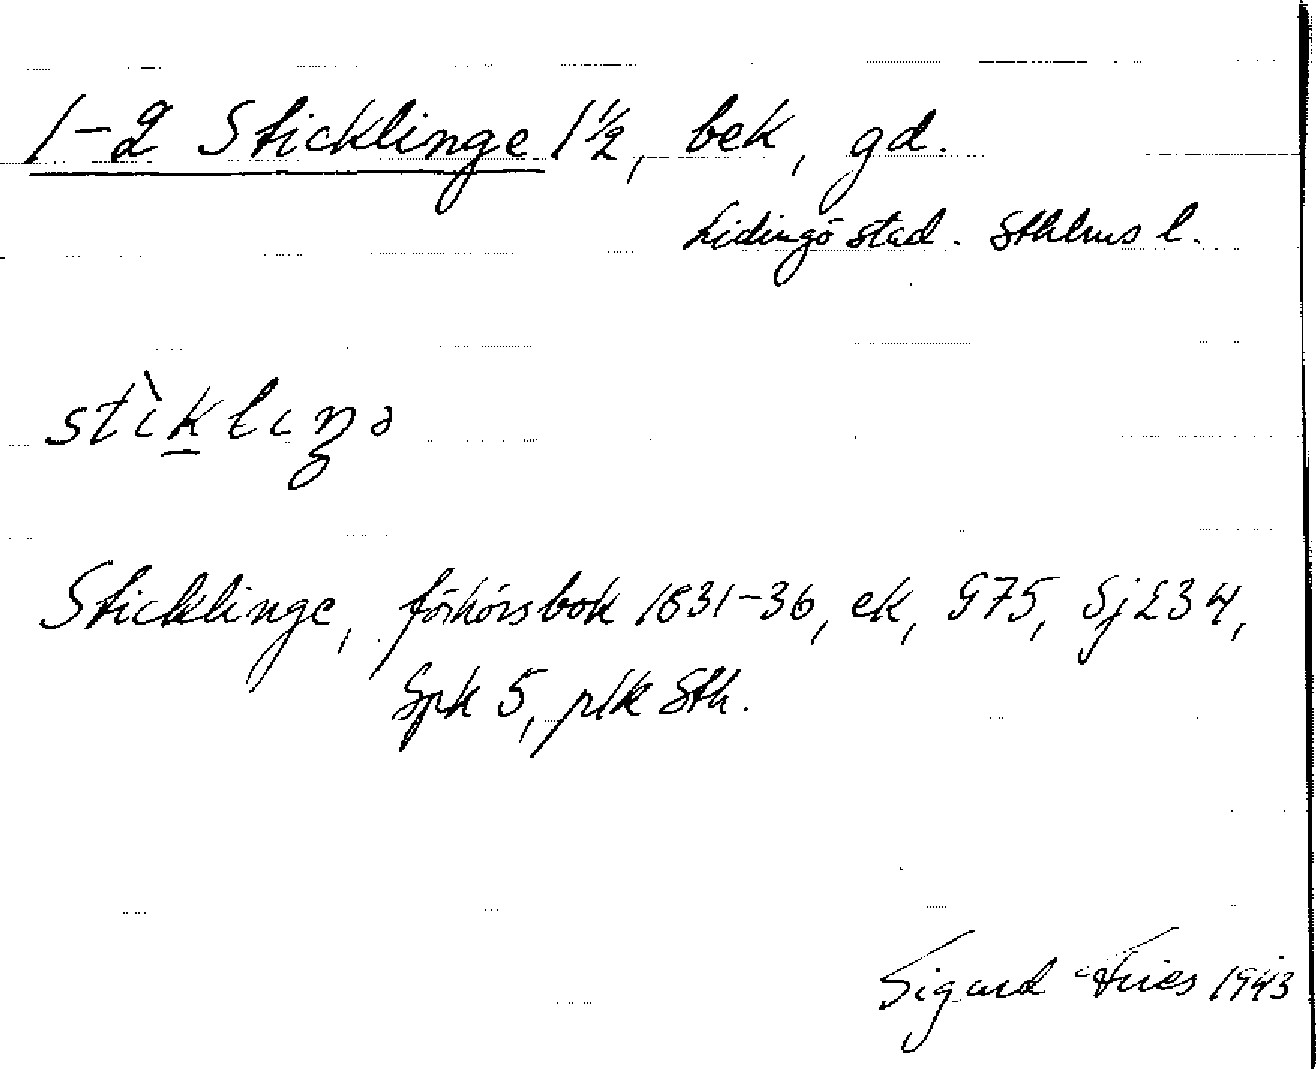 1-2 Sticklinge 1½, bek, gd.
Lidingö stad. Sthlms l.
stìk̲liŋə
Sticklinge, förhörsbok 1831-36, ek, G75, Sj£34,
Spk 5, ptk Sth.
Sigurd Fries 1943